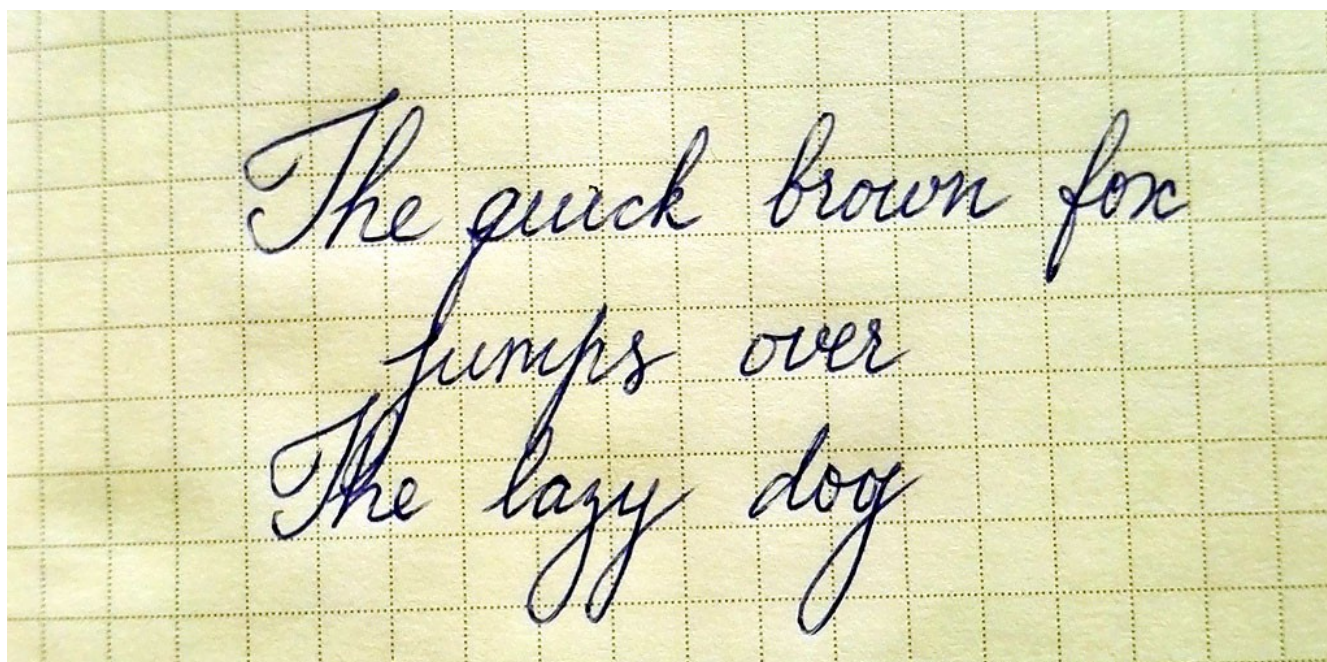 The quick brown fox
jumps over
The lazy dog